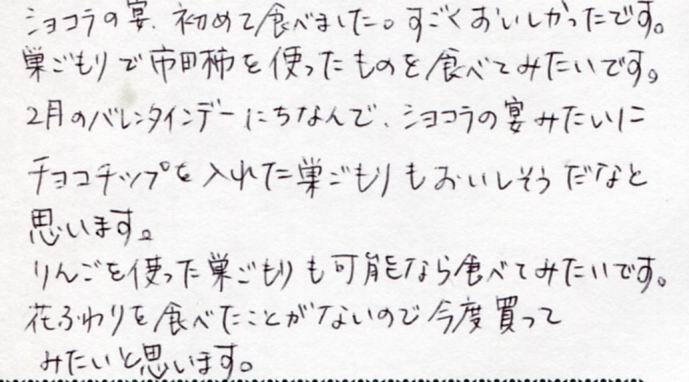 ショコラの宴、初めて食べました。すごくおいしかったです。
巣ごもりで市田柿を使ったものを食べてみたいです。
2月のバレンタインデーにちなんで、ショコラの宴みたいに
チョコチップを入れた巣ごもりもおいしそうだなと
思います。
りんごを使った巣ごもりも可能なら食べてみたいです。
花ふわりを食べたことがないので今度買って
みたいと思います。